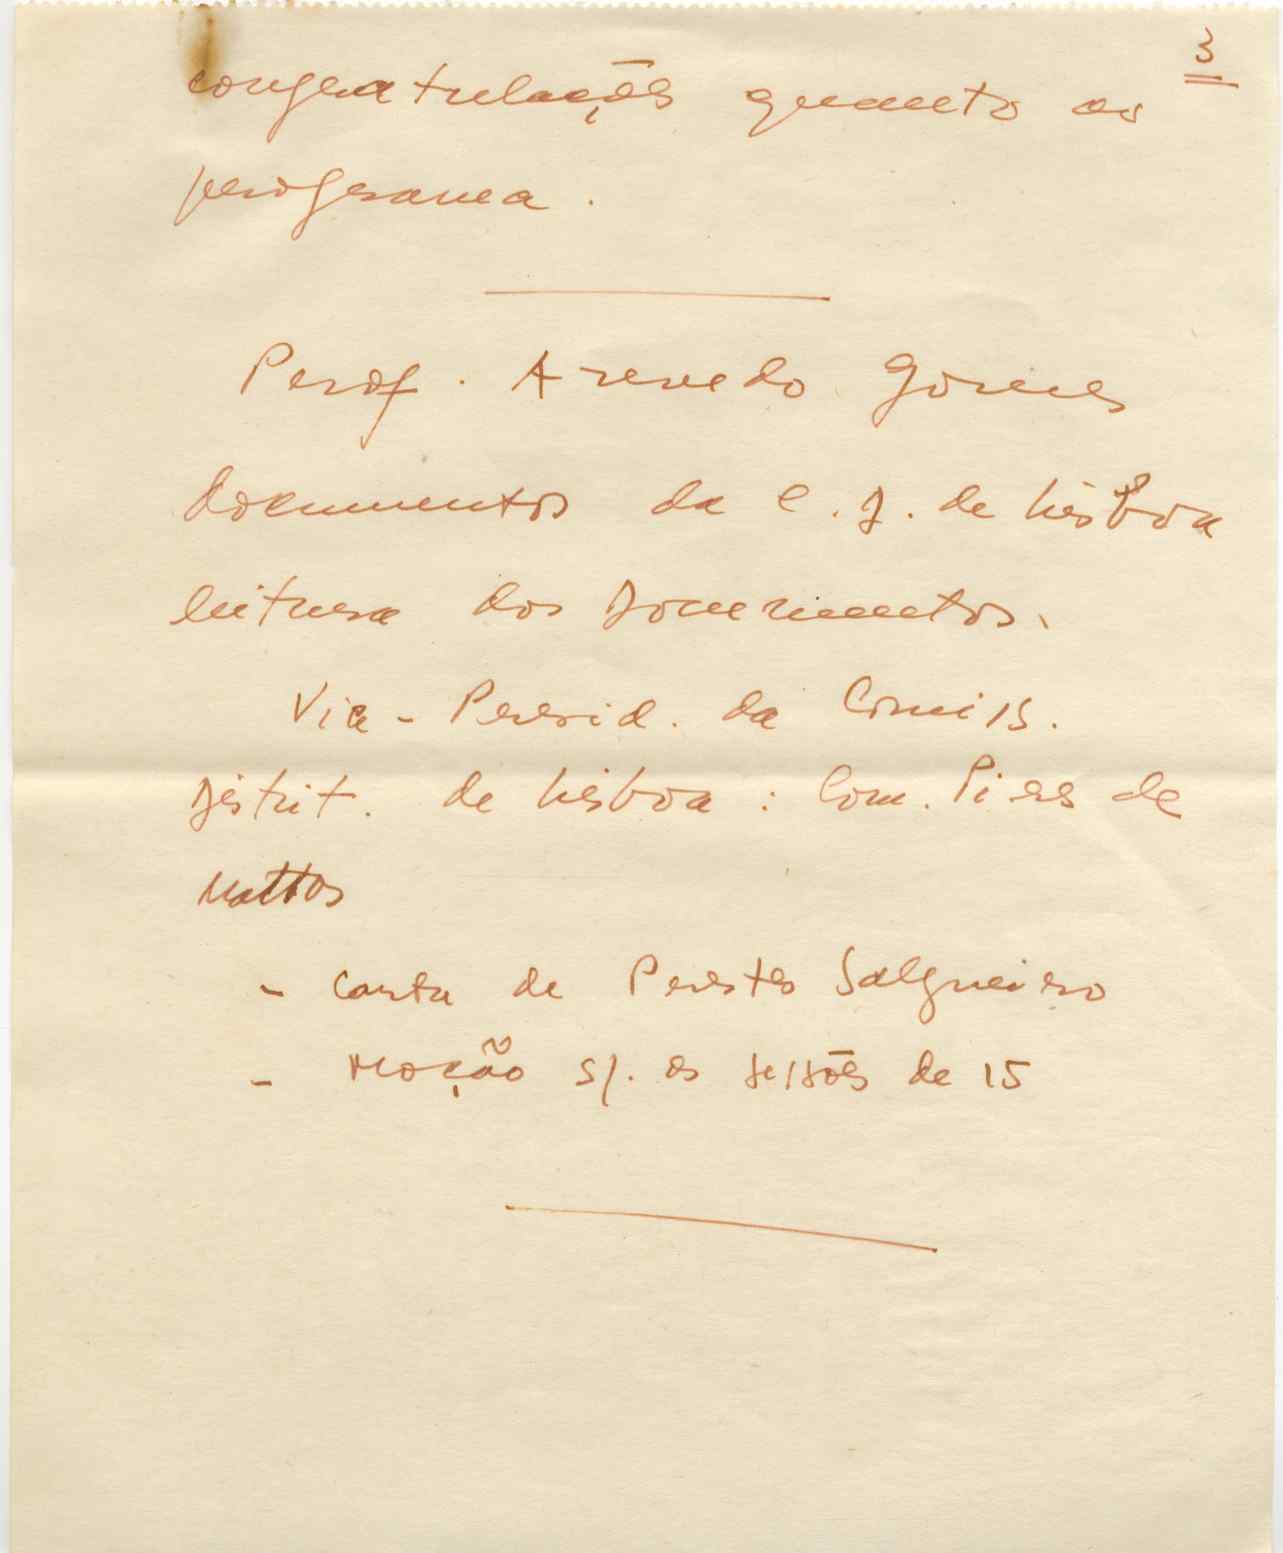 3
congratulações quanto ao
programa.
Prof. Azevedo Gomes
documentos da C. J. de Lisboa
leitura dos Documentos.
Vice-Presid. da Comiss.
Distrit. de Lisboa: Com. Pires de
Mattos
- Carta de Prestes Salgueiro
- Moção s/. as sessões de 15